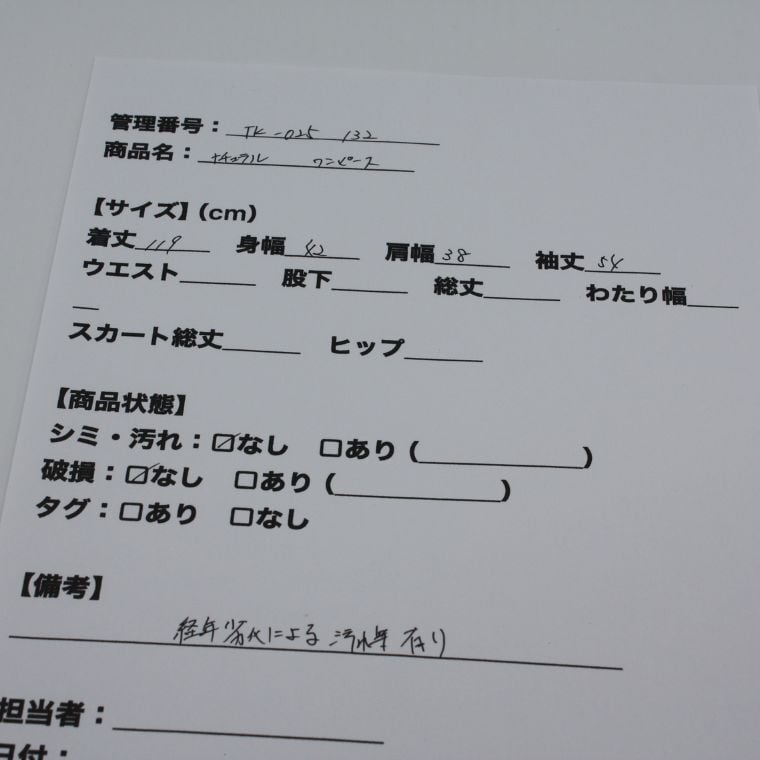 管理番号： TK-025 132
商品名： ナチュラル ワンピース
【サイズ】(cm)
着丈 119 身幅 42 肩幅 38 袖丈 54
ウエスト 股下 総丈 わたり幅
スカート総丈 ヒップ
【商品状態】
シミ・汚れ：☑なし □あり（ ）
破損：☑なし □あり（ ）
タグ：□あり □なし
【備考】
経年劣化による 汚れ等 有り
担当者：
日付：